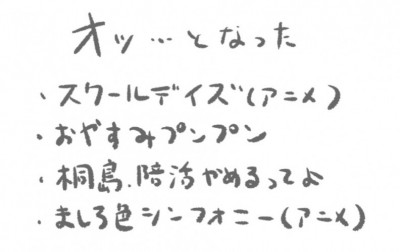 オッ…となった
・スクールデイズ(アニメ)
・おやすみプンプン
・桐島、陪活やめるってよ
・ましろ色シンフォニー(アニメ)